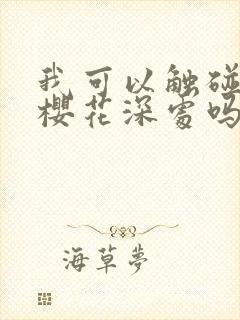 我可以触碰
樱花深处吗
海草夢